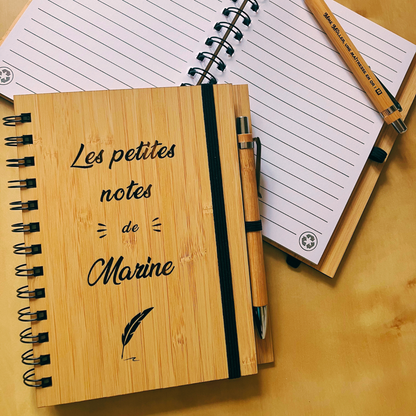 Les petites
notes
de
Marine